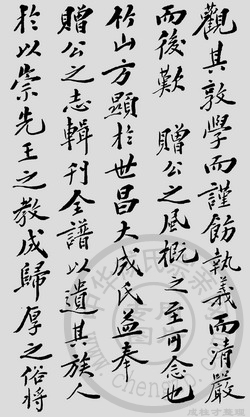 觀其敦學而謹飭執義而清嚴
而後歎 贈公之風概之至可念也
竹山方顯於世昌大成氏益奉
贈公之志輯刊全譜以遺其族人
於以崇先王之教成歸厚之俗將